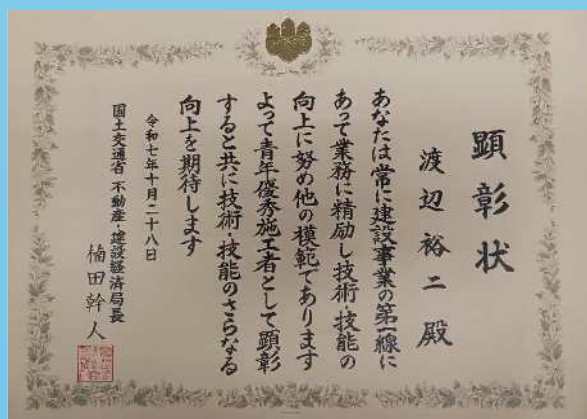 顕彰状
渡辺裕二殿
あなたは常に建設事業の第一線に
あって業務に精励し技術・技能の
向上に努め他の模範であります
よって青年優秀施工者として顕彰
すると共に技術・技能のさらなる
向上を期待します
令和七年十月二十八日
国土交通省 不動産・建設経済局長
楠田幹人